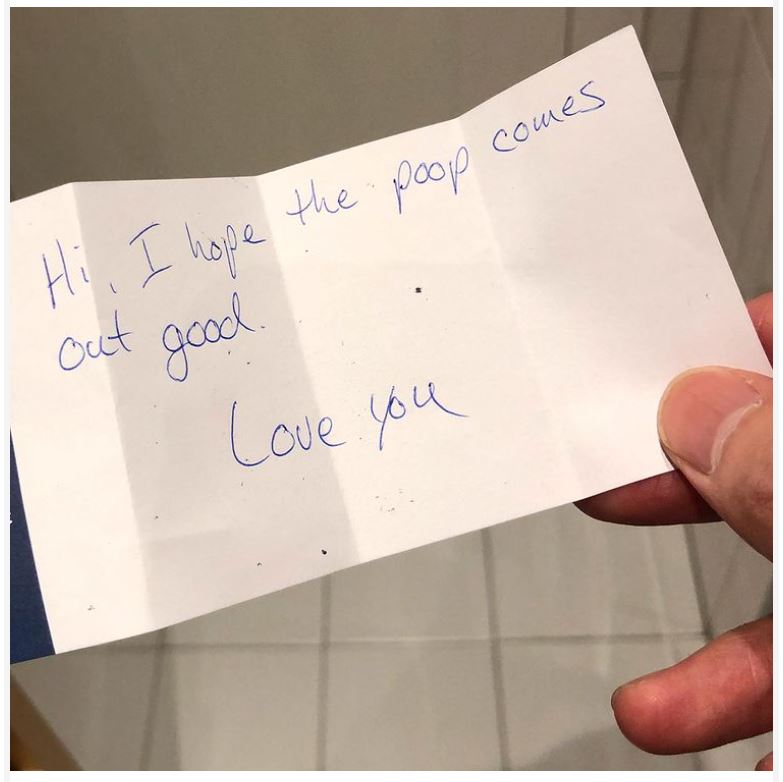 Hi, I hope the poop comes
out good.
Love you